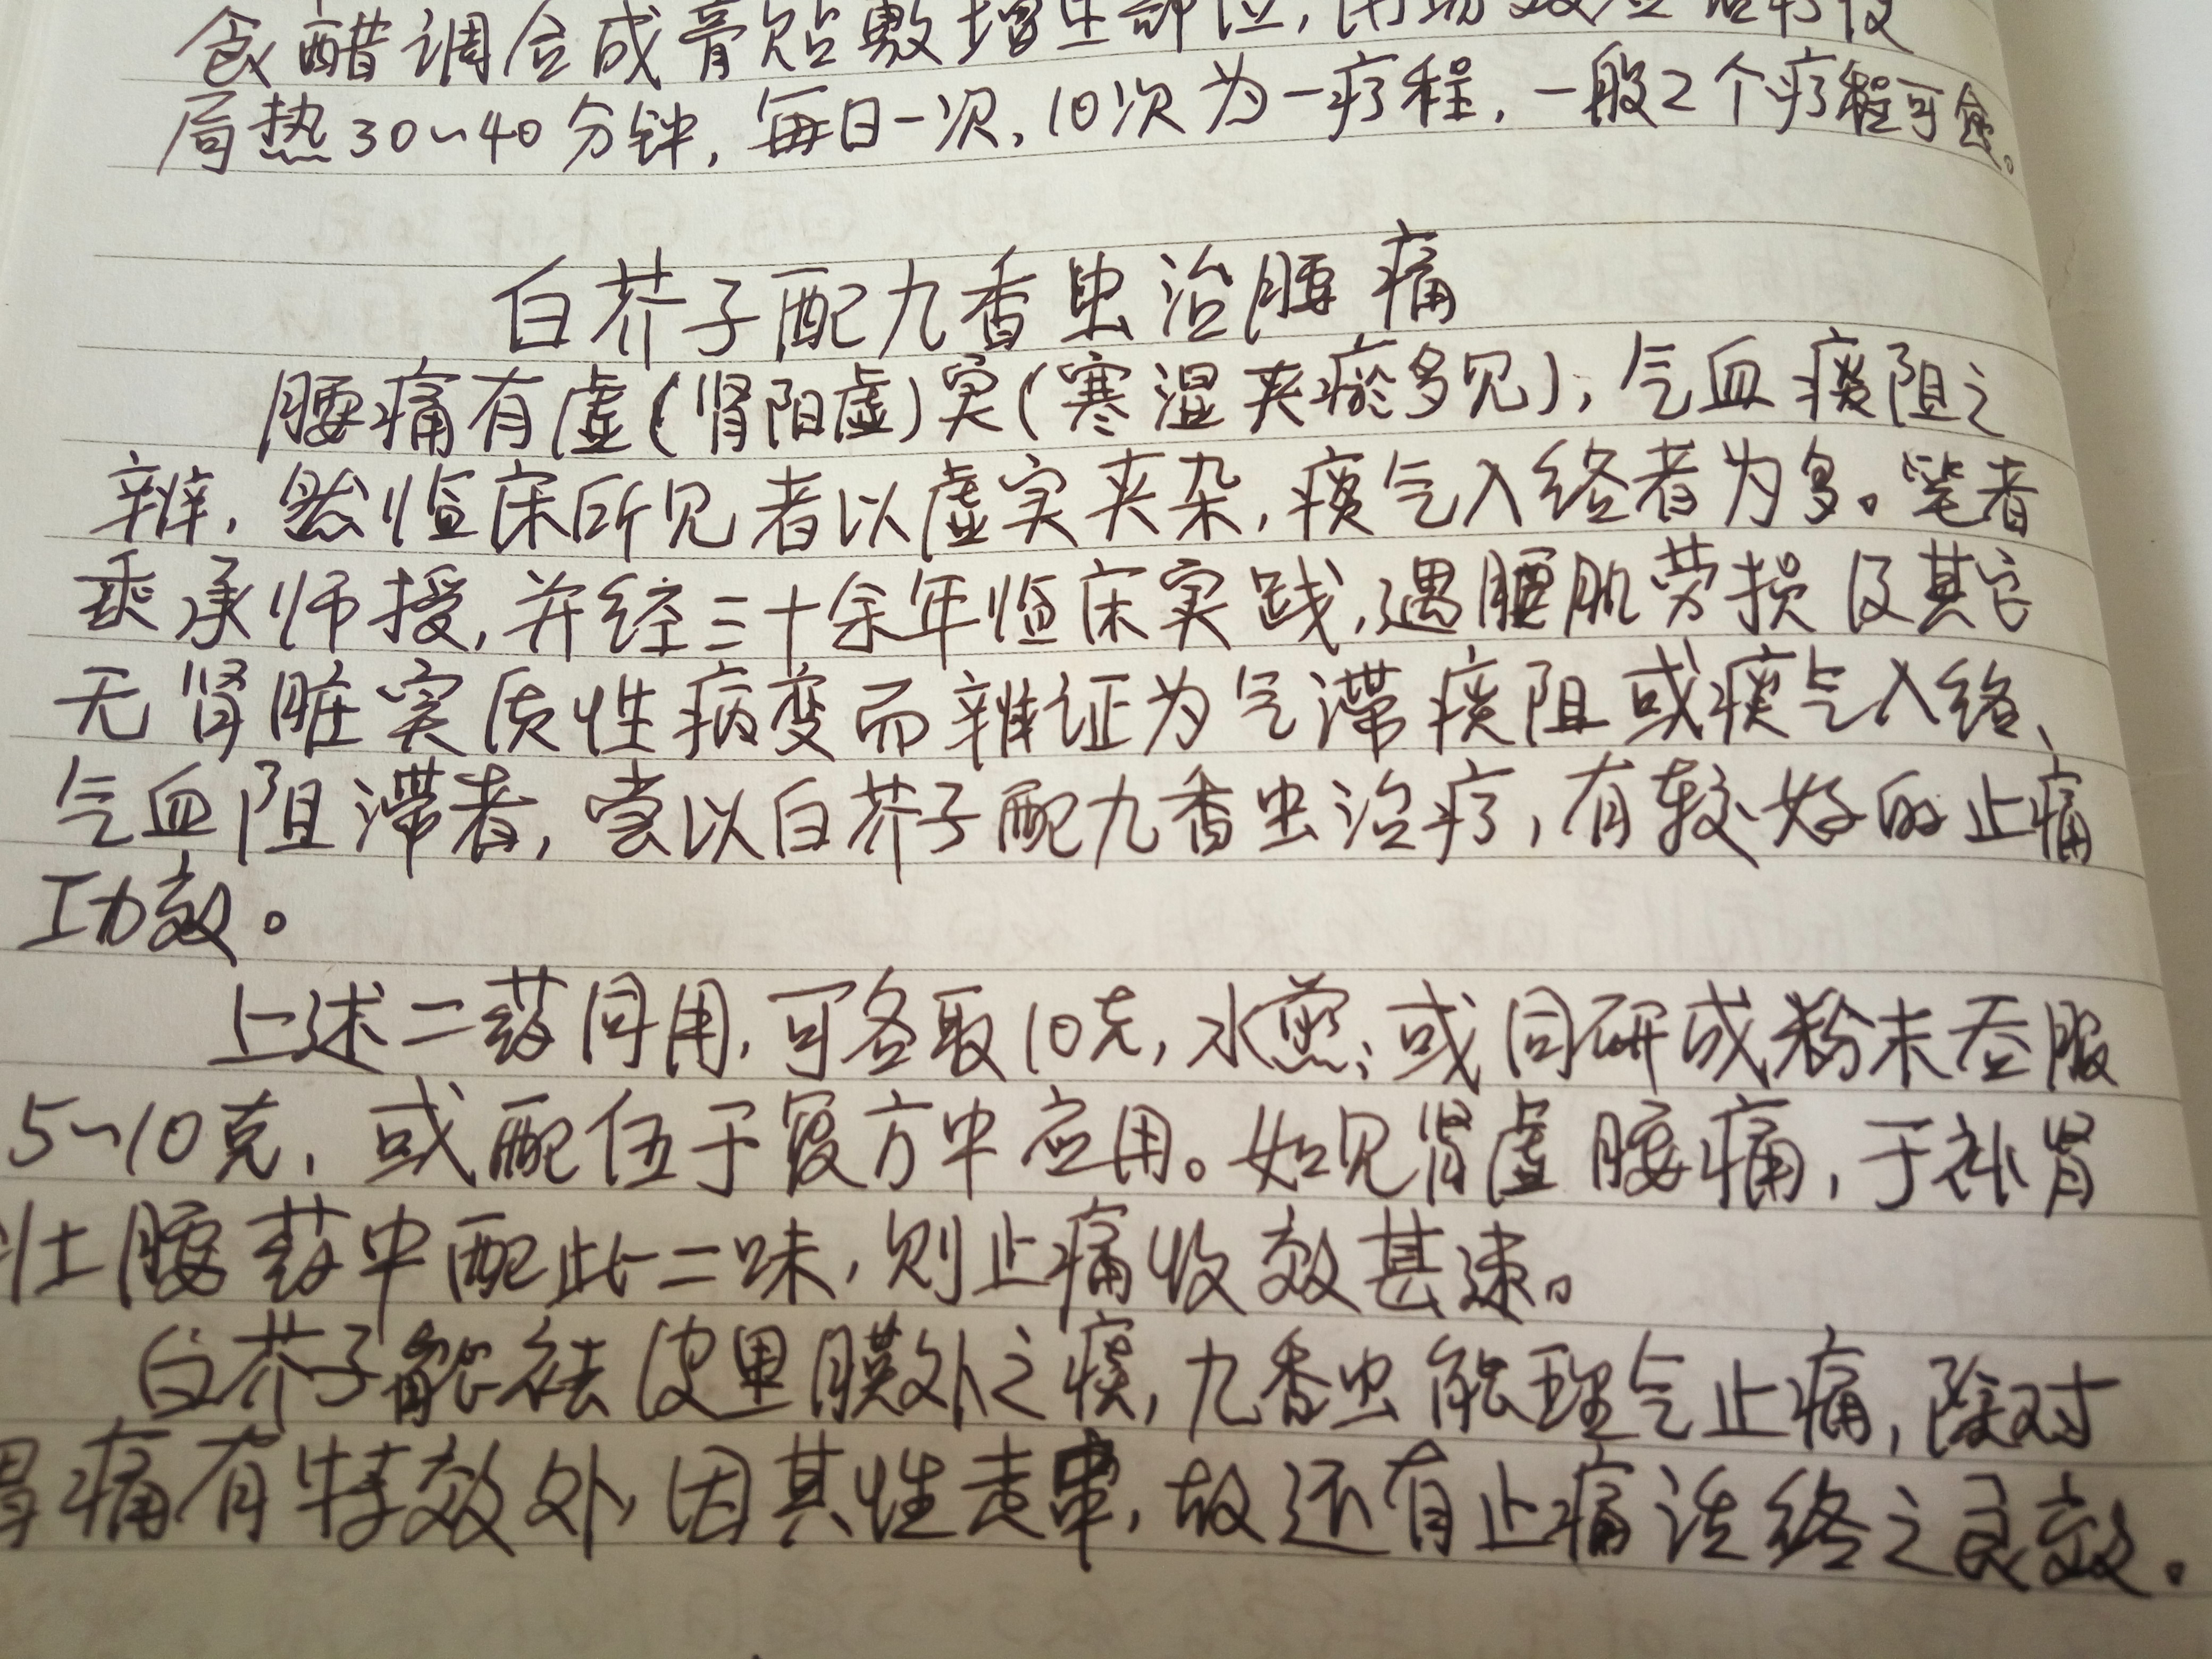 食醋调合成膏贴敷增生部位,
局热30~40分钟,每日一次,10次为一疗程,一般2个疗程可愈。
白芥子配九香虫治腰痛
腰痛有虚(肾阳虚)实(寒湿夹瘀多见),气血痰阻之
辨,然临床所见者以虚实夹杂,痰气入络者为多。笔者
秉承师授,并经三十余年临床实践,遇腰肌劳损及其它
无肾脏实质性病变而辨证为气滞痰阻或痰气入络、
气血阻滞者,尝以白芥子配九香虫治疗,有较好的止痛
功效。
上述二药同用,可各取10克,水煎;或同研成粉末吞服
5~10克,或配伍于复方中应用。如见肾虚腰痛,于补肾
壮腰药中配此二味,则止痛收效甚速。
白芥子能祛皮里膜外之痰,九香虫能理气止痛,除对
胃痛有特效外,因其性走串,故还有止痛活络之良效。